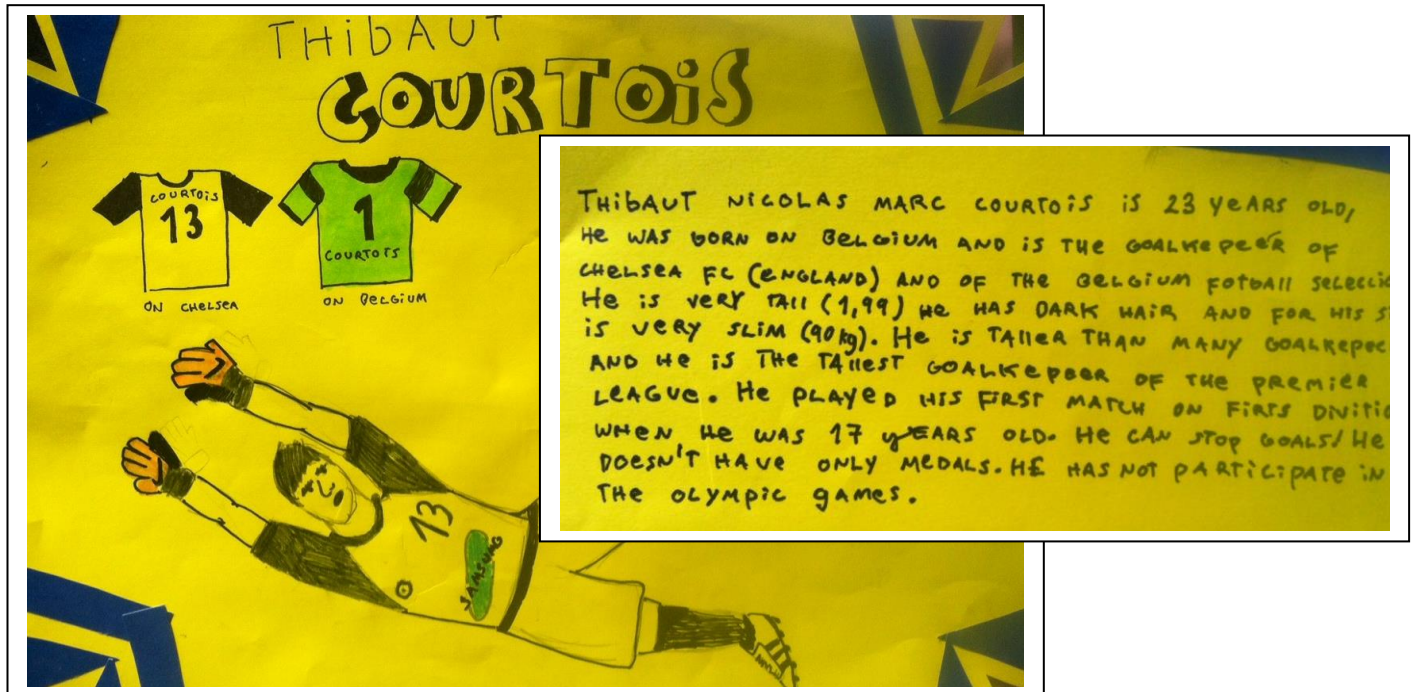 THiBAUT
COURTOiS
COURTOiS
13
1
COURTOIS
ON CHELSEA
ON BELGIUM
13
SAMSUNG
THiBAUT NICOLAS MARC COURTOiS iS 23 YeARS OLD,
He WAS BORN ON BeLGiUM AND iS THe GOALKePeeR OF
CHeLSeA FC (eNGLAND) AND OF THe BeLGiUM FOTBAll SeLecciO
He iS veRY TAll (1,99) He HAS DARK HAiR AND FOR HiS S
iS veRY SLiM (90 kg). He iS TAlleR THAN MANY GOALKePee
AND He iS THe TAlleST GOALKePeeR OF THe PReMieR
LeAGUe. He PLAYeD HiS FiRST MATCH ON FiRTS DiViTiO
WHeN He WAS 17 yEARS OLD. He CAN STOP GOALS! He
DOeSN'T HAVe ONLY MeDALS. HE HAS NOT PARTiCiPATe iN
THe OLYMPiC gAMeS.